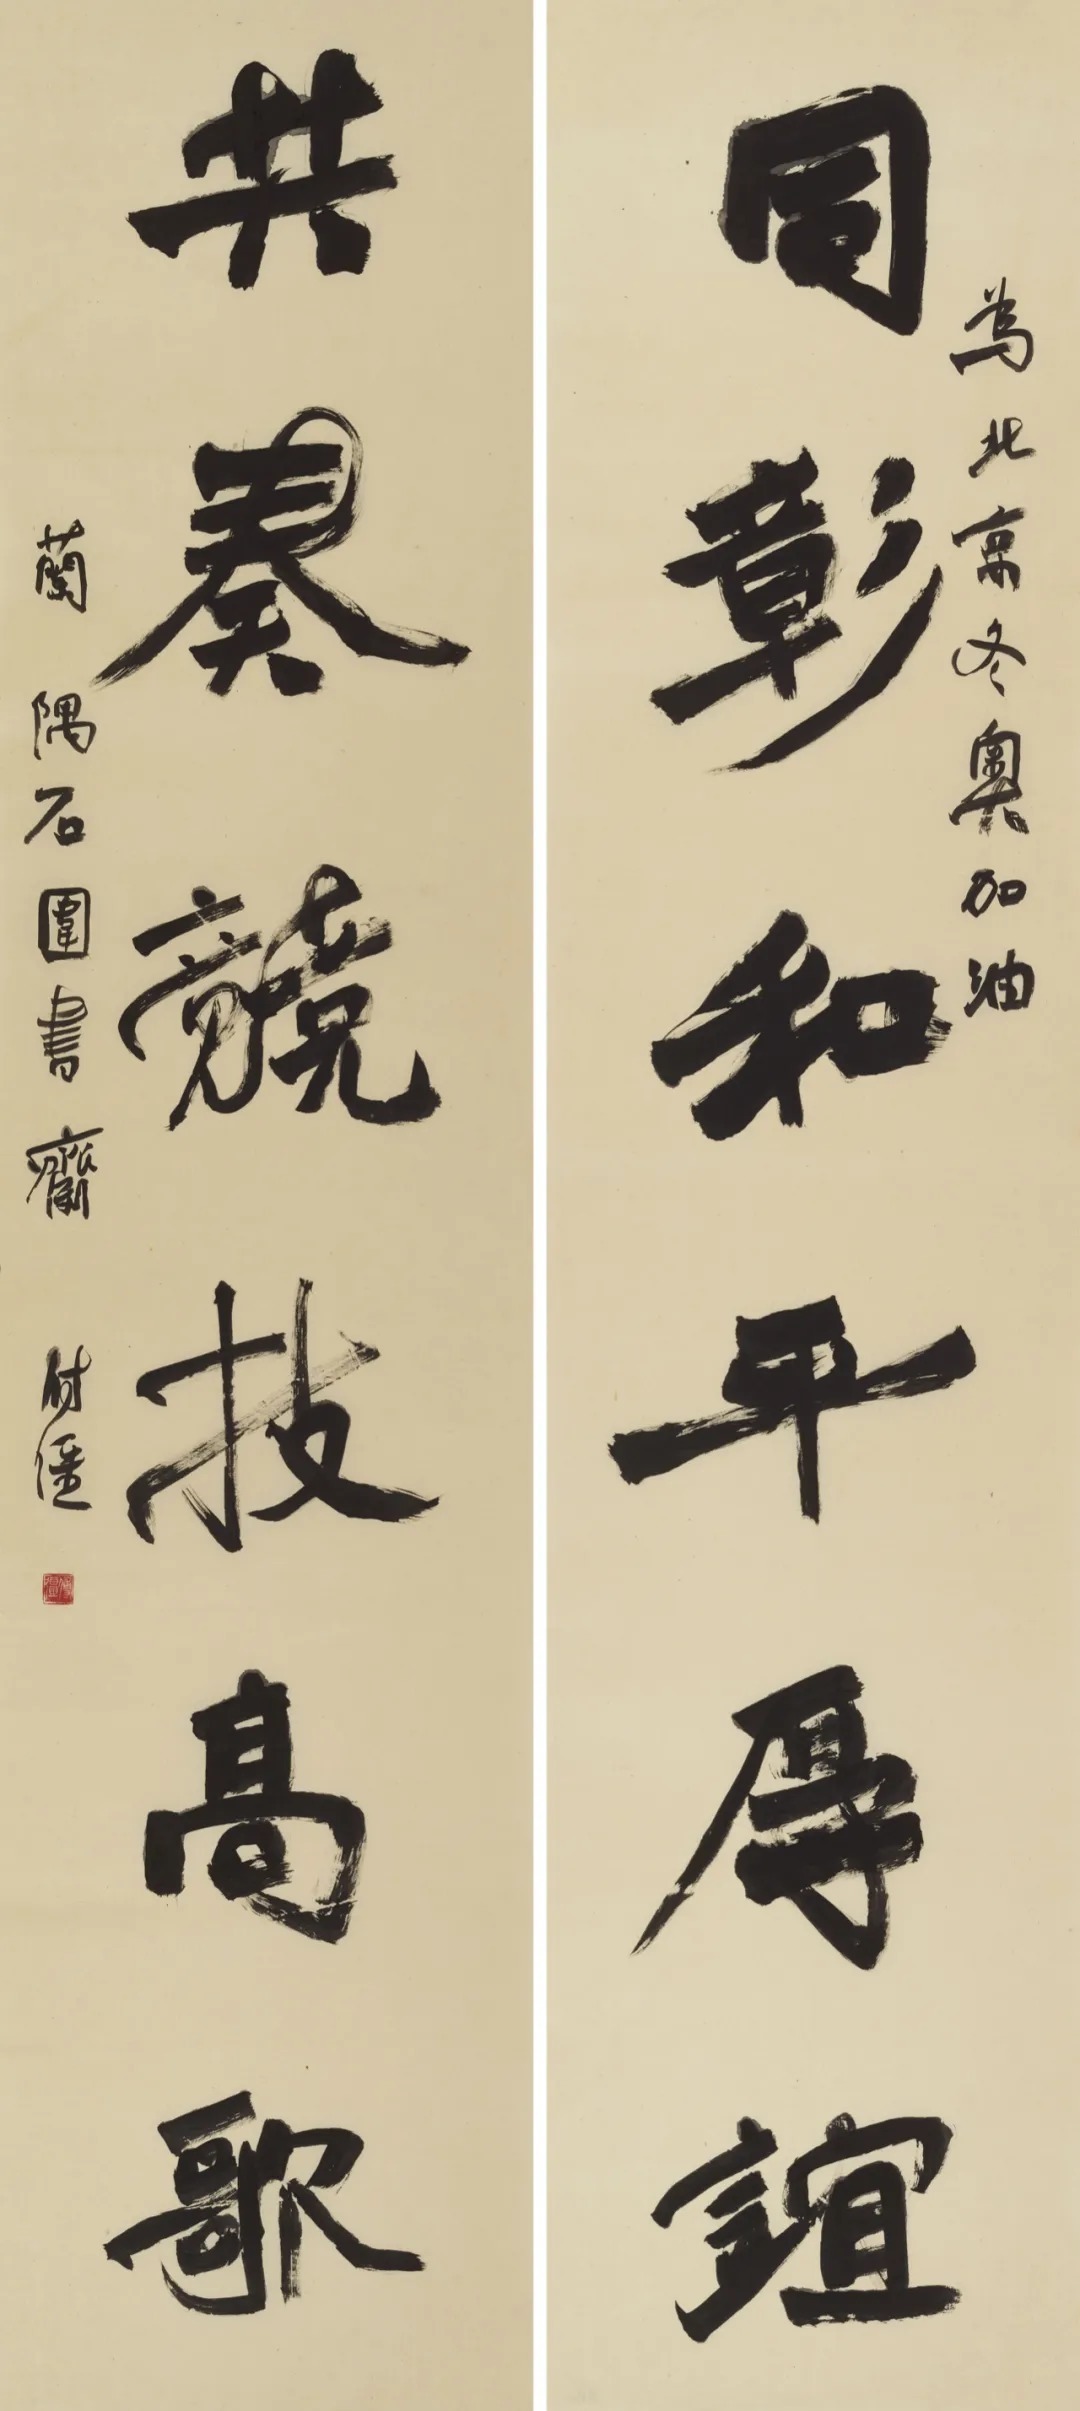 为北京冬奥加油
同彰和平厚誼
共奏競技高歌
蘭隅石圍書齋